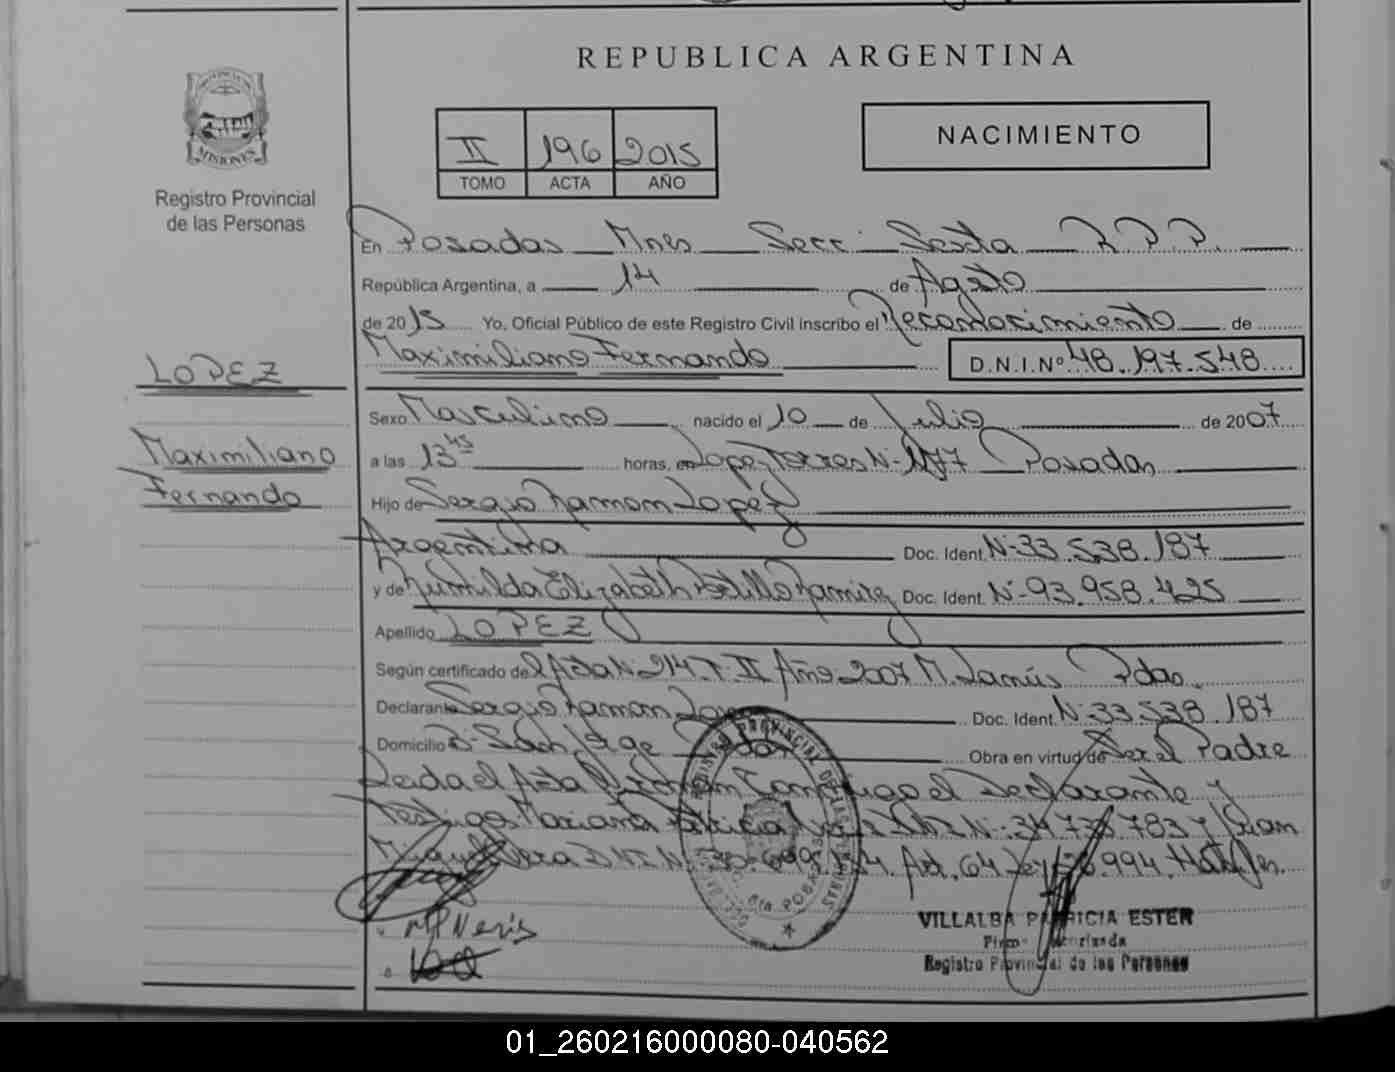 REPUBLICA ARGENTINA
MISIONES
Registro Provincial
de las Personas
II 196 2015
TOMO ACTA AÑO
NACIMIENTO
En Posadas Mnes Secc: Sexta R.P.P.
República Argentina, a 14 de Agosto
de 2015 Yo, Oficial Público de este Registro Civil inscribo el Reconocimiento de
Maximiliano Fernando D.N.I.Nº 48.197.548
LOPEZ
Maximiliano
Fernando
Sexo Masculino nacido el 10 de Julio de 2007
a las 13 45 horas, en Lopez Torres N- 1177 Posadas
Hijo de Sergio Ramon Lopez
Argentina Doc. Ident. N-33.538.187
y de Elizabeth Portillo Ramirez Doc. Ident. N-93.958.425
Apellido LOPEZ
Según certificado del Acta N-214.T-II Año 2007 M. Lanús Pdas.
Declarante Sergio Ramon Lopez Doc. Ident. N-33.538.187
Domicilio B- San Jorge Pdas Obra en virtud de Ser el Padre
Leida el Acta Firman Conmigo el Declarante y
Testigos Mariana Patricia D.N.I. N- y Juan
Miguel Vera D.N.I. N- Art. 64 Ley
MP Neris
VILLALBA PATRICIA ESTER
Firma Autorizada
Registro Provincial de las Personas
01_260216000080-040562